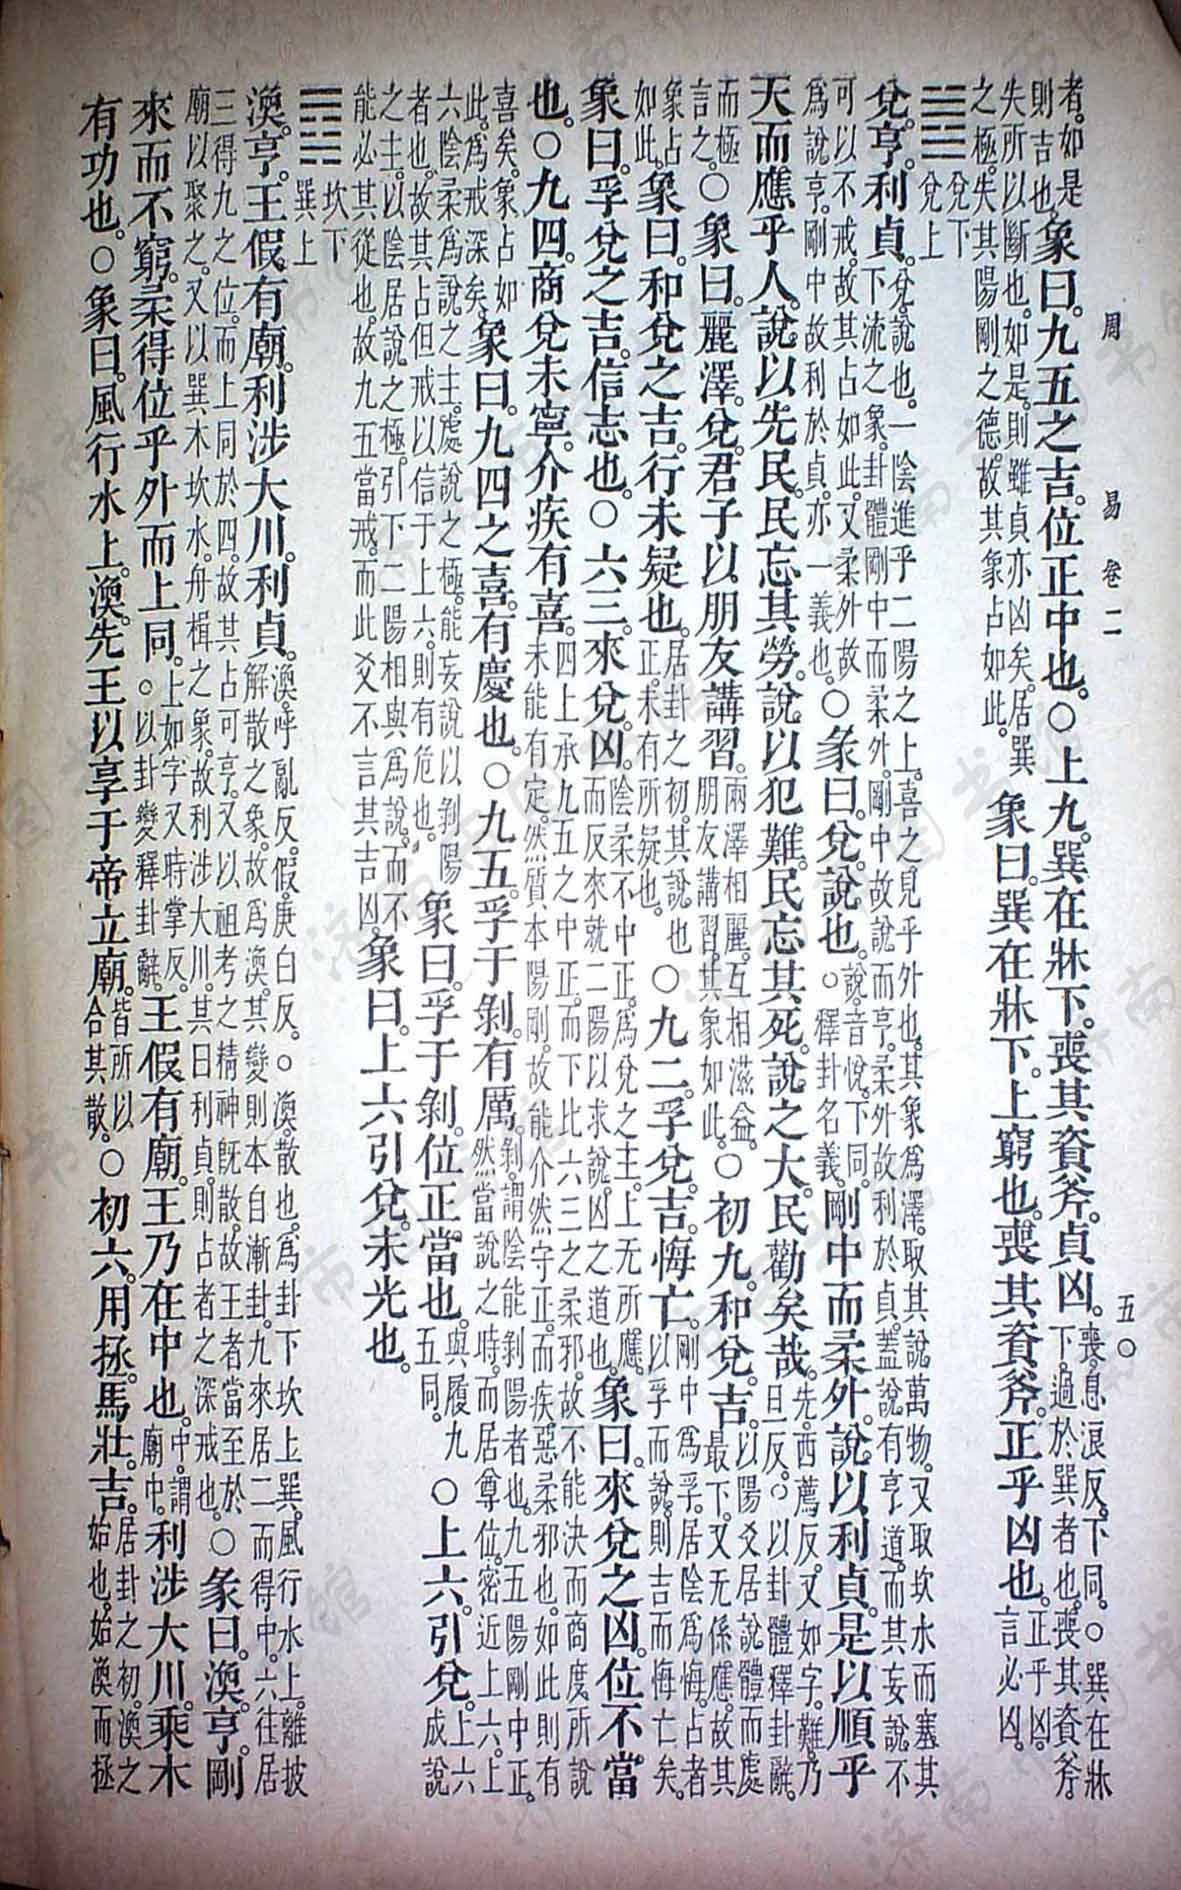 周易 卷二 五〇
者。如是則吉也。象曰。九五之吉。位正中也。〇上九。巽在牀下。喪其資斧。貞凶。喪。息浪反。下同。〇巽在牀下。過於巽者也。喪其資斧。
失所以斷也。如是。則雖貞亦凶矣。居巽之極。失其陽剛之德。故其象占如此。象曰。巽在牀下。上窮也。喪其資斧。正乎凶也。正乎凶。言必凶。
䷹ 兌下兌上
兌。亨。利貞。兌。說也。一陰進乎二陽之上。喜之見乎外也。其象爲澤。取其說萬物。又取坎水而塞其下流之象。卦體剛中而柔外。剛中故說而亨。柔外故利於貞。蓋說有亨道。而其妄說不
可以不戒。故其占如此。又柔外故爲說亨。剛中故利於貞。亦一義也。〇彖曰。兌。說也。說。音悅。下同。〇釋卦名義。剛中而柔外。說以利貞。是以順乎
天而應乎人。說以先民。民忘其勞。說以犯難。民忘其死。說之大。民勸矣哉。先。西薦反。又如字。難。乃旦反。〇以卦體釋卦辭。
而極言之。〇象曰。麗澤。兌。君子以朋友講習。兩澤相麗。互相滋益。朋友講習。其象如此。〇初九。和兌。吉。以陽爻居說體。而處最下。又无係應。故其
象占如此。象曰。和兌之吉。行未疑也。居卦之初。其說也正。未有所疑也。〇九二。孚兌。吉。悔亡。剛中爲孚。居陰爲悔。占者以孚而說。則吉而悔亡矣。
象曰。孚兌之吉。信志也。〇六三。來兌。凶。陰柔不中正。爲兌之主。上无所應。而反來就二陽以求說。凶之道也。象曰。來兌之凶。位不當
也。〇九四。商兌未寧。介疾有喜。四上承九五之中正。而下比六三之柔邪。故不能決而商度所說。未能有定。然質本陽剛。故能介然守正。而疾惡柔邪也。如此則有
喜矣。象占如此。爲戒深矣。象曰。九四之喜。有慶也。〇九五。孚于剝。有厲。剝。謂陰能剝陽者也。九五陽剛中正。然當說之時。而居尊位。密近上六。上
六陰柔爲說之主。處說之極。能妄說以剝陽者也。故其占但戒以信于上六。則有危也。象曰。孚于剝。位正當也。與履九五同。〇上六。引兌。上六成說
之主。以陰居說之極。引下二陽相與爲說。而不能必其從也。故九五當戒。而此爻不言其吉凶。象曰。上六引兌。未光也。
䷺ 坎下巽上
渙。亨。王假有廟。利涉大川。利貞。渙。呼亂反。假。庚白反。〇渙。散也。爲卦下坎上巽。風行水上。離披解散之象。故爲渙。其變則本自漸卦。九來居二而得中。六往居
三得九之位。而上同於四。故其占可亨。又以祖考之精神旣散。故王者當至於廟以聚之。又以巽木坎水。舟楫之象。故利涉大川。其曰利貞。則占者之深戒也。〇彖曰。渙。亨。剛
來而不窮。柔得位乎外而上同。上如字。又時掌反。〇以卦變釋卦辭。王假有廟。王乃在中也。中。謂廟中。利涉大川。乘木
有功也。〇象曰。風行水上。渙。先王以享于帝立廟。皆所以合其散。〇初六。用拯。馬壯。吉。居卦之初。渙之始也。始渙而拯